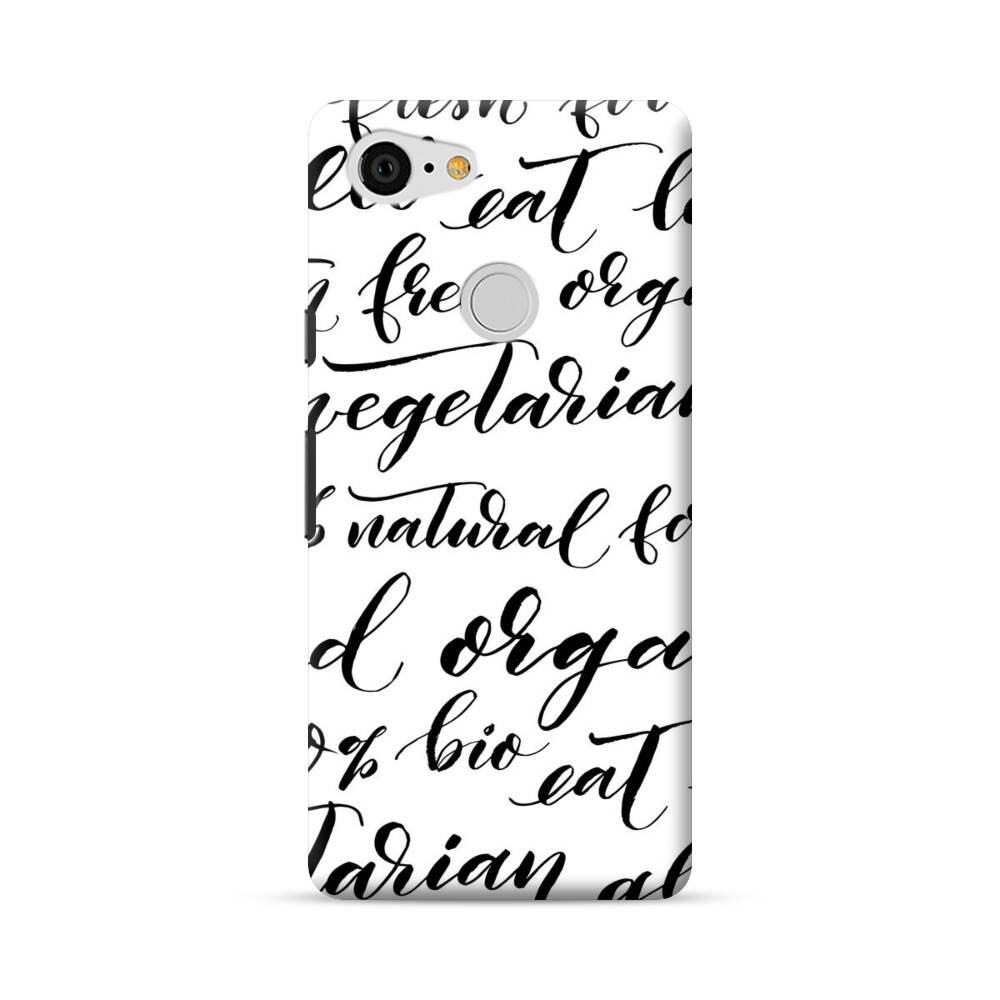 fresh
eat
free orga
vegetarian
natural fo
d organ
0% bio eat
tarian al